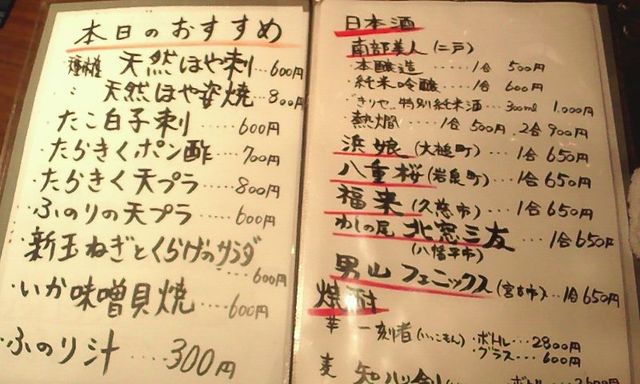 本日のおすすめ
種市産 天然ほや刺…600円
〃 天然ほや姿焼…800円
たこ白子刺……600円
たらきくポン酢…700円
たらきく天プラ……800円
ふのりの天プラ……600円
新玉ねぎとくらげのサラダ
……600円
・いか味噌貝焼……600円
・ふのり汁……300円
日本酒
南部美人(二戸)
・本醸造……1合 500円
・純米吟醸…1合 600円
・きりや、特別純米酒…300ml 1,000円
・熱燗……1合500円、2合900円
浜娘(大槌町)…1合650円
八重桜(岩泉町)…1合650円
福来(久慈市)……1合650円
わしの尾 北窓三友…1合650円
(八幡平市)
男山 フェニックス(宮古市)…1合650円
焼酎
芋 一刻者(いっこもん)・ボトル…2800円
・グラス…600円
麦